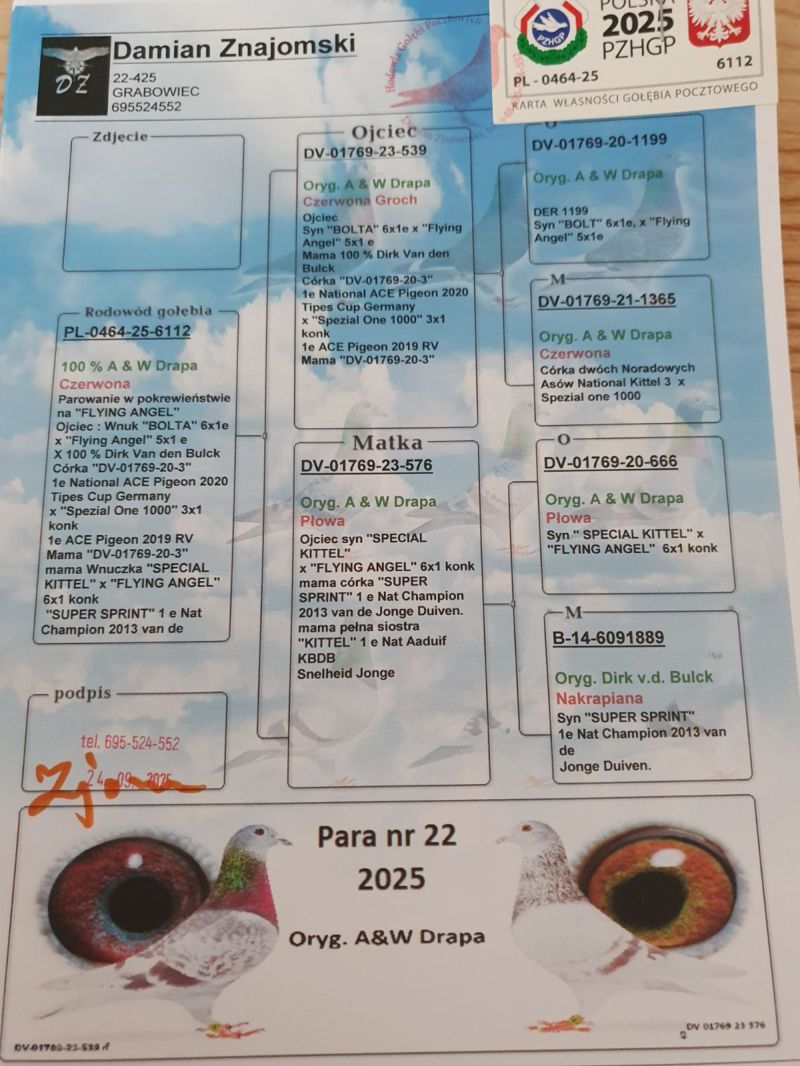 DZ
Damian Znajomski
22-425
GRABOWIEC
695524552
Hodowla Gołębi Pocztowych
POLSKA
2025
PZHGP
PZHGP
PL - 0464-25
6112
KARTA WŁASNOŚCI GOŁĘBIA POCZTOWEGO
Zdjecie
Rodowód gołebia
PL-0464-25-6112
100 % A & W Drapa
Czerwona
Parowanie w pokrewieństwie
na "FLYING ANGEL"
Ojciec : Wnuk "BOLTA" 6x1e
x "Flying Angel" 5x1 e
X 100 % Dirk Van den Bulck
Córka "DV-01769-20-3"
1e National ACE Pigeon 2020
Tipes Cup Germany
x "Spezial One 1000" 3x1
konk
1e ACE Pigeon 2019 RV
Mama "DV-01769-20-3"
mama Wnuczka "SPECIAL
KITTEL" x "FLYING ANGEL"
6x1 konk
"SUPER SPRINT" 1 e Nat
Champion 2013 van de
podpis
tel. 695-524-552
24. 09. 2025
Ojciec
DV-01769-23-539
Oryg. A & W Drapa
Czerwona Groch
Ojciec
Syn "BOLTA" 6x1e x "Flying
Angel" 5x1 e
Mama 100 % Dirk Van den
Bulck
Córka "DV-01769-20-3"
1e National ACE Pigeon 2020
Tipes Cup Germany
x "Spezial One 1000" 3x1
konk
1e ACE Pigeon 2019 RV
Mama "DV-01769-20-3"
Matka
DV-01769-23-576
Oryg. A & W Drapa
Płowa
Ojciec syn "SPECIAL
KITTEL"
x "FLYING ANGEL" 6x1 konk
mama córka "SUPER
SPRINT" 1 e Nat Champion
2013 van de Jonge Duiven.
mama pełna siostra
"KITTEL" 1 e Nat Aaduif
KBDB
Snelheid Jonge
O
DV-01769-20-1199
Oryg. A & W Drapa
DER 1199
Syn "BOLT" 6x1e, x "Flying
Angel" 5x1e
M
DV-01769-21-1365
Oryg. A & W Drapa
Czerwona
Córka dwóch Noradowych
Asów National Kittel 3 x
Spezial one 1000
O
DV-01769-20-666
Oryg. A & W Drapa
Płowa
Syn " SPECIAL KITTEL" x
"FLYING ANGEL" 6x1 konk
M
B-14-6091889
Oryg. Dirk v.d. Bulck
Nakrapiana
Syn "SUPER SPRINT"
1e Nat Champion 2013 van
de
Jonge Duiven.
Para nr 22
2025
Oryg. A&W Drapa
DV-01769-23-539 ♂
DV 01769 23 576
♀